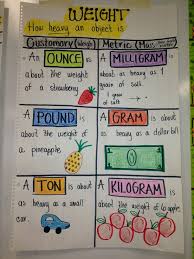 WEIGHT
How heavy an object is
Customary (Weight)
Metric (Mass
An OUNCE is
about the weight
of a strawberry
A MILLIGRAM is
about as heavy as 1
grain of salt.
1 grain
of salt
A POUND is
about the
weight of
a pineapple
A GRAM is about
as heavy as a dollar bill
A TON is about
as heavy as a small
car.
A KILOGRAM is
about the weight of 6 apples